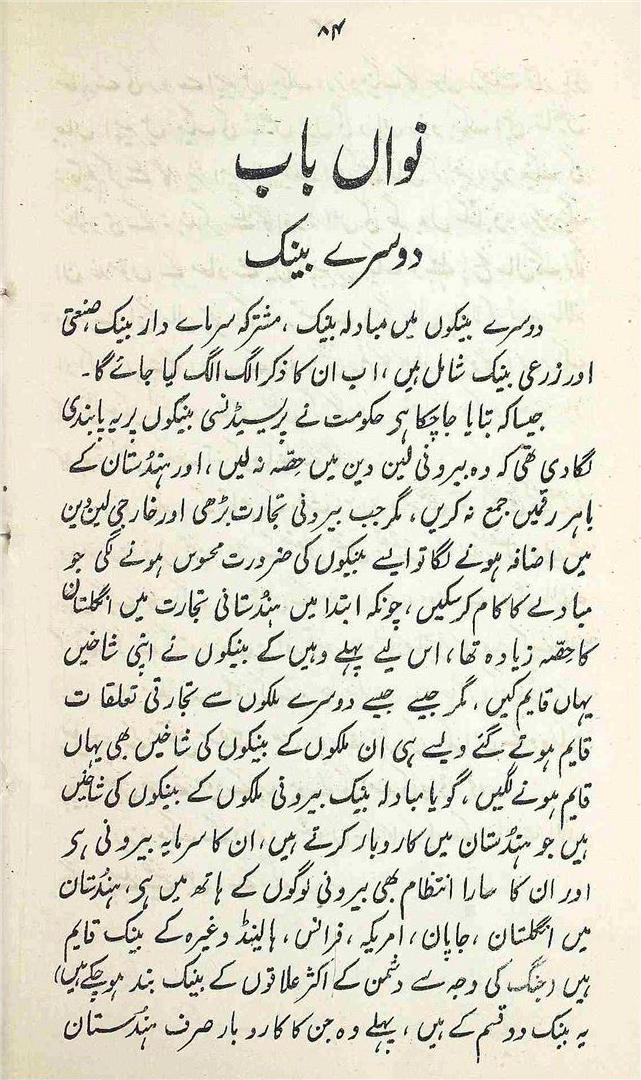 ۸۴
نواں باب
دوسرے بینک
دوسرے بینکوں میں مبادلہ بینک، مشترکہ سرماے دار بینک، صنعتی
اور زرعی بینک شامل ہیں، اب ان کا ذکر الگ الگ کیا جائے گا۔
جیسا کہ بتایا جاچکا ہر حکومت نے پریسیڈنسی بینکوں پر یہ پابندی
لگادی تھی کہ وہ بیرونی لین دین میں حصّہ نہ لیں، اور ہندُستان کے
باہر رقمیں جمع نہ کریں، مگر جب بیرونی تجارت بڑھی اور خارجی لین دین
میں اضافہ ہونے لگا تو ایسے بینکوں کی ضرورت محسوس ہونے لگی جو
مبادلے کا کام کرسکیں، چونکہ ابتدا میں ہندُستانی تجارت میں انگلستان
کا حصّہ زیادہ تھا، اس لیے پہلے وہیں کے بینکوں نے اپنی شاخیں
یہاں قایم کیں، مگر جیسے جیسے دوسرے ملکوں سے تجارتی تعلقات
قایم ہوتے گئے ویسے ہی ان ملکوں کے بینکوں کی شاخیں بھی یہاں
قایم ہونے لگیں، گویا مبادلہ بینک بیرونی ملکوں کے بینکوں کی شاخیں
ہیں جو ہندُستان میں کاروبار کرتے ہیں، ان کا سرمایہ بیرونی ہر
اور ان کا سارا انتظام بھی بیرونی لوگوں کے ہاتھ میں ہر، ہندُستان
میں انگلستان، جاپان، امریکہ، فرانس، ہالینڈ وغیرہ کے بینک قایم
ہیں (جنگ کی وجہ سے دشمن کے اکثر علاقوں کے بینک بند ہوچکے ہیں)
یہ بینک دو قسم کے ہیں، پہلے وہ جن کا کاروبار صرف ہندُستان